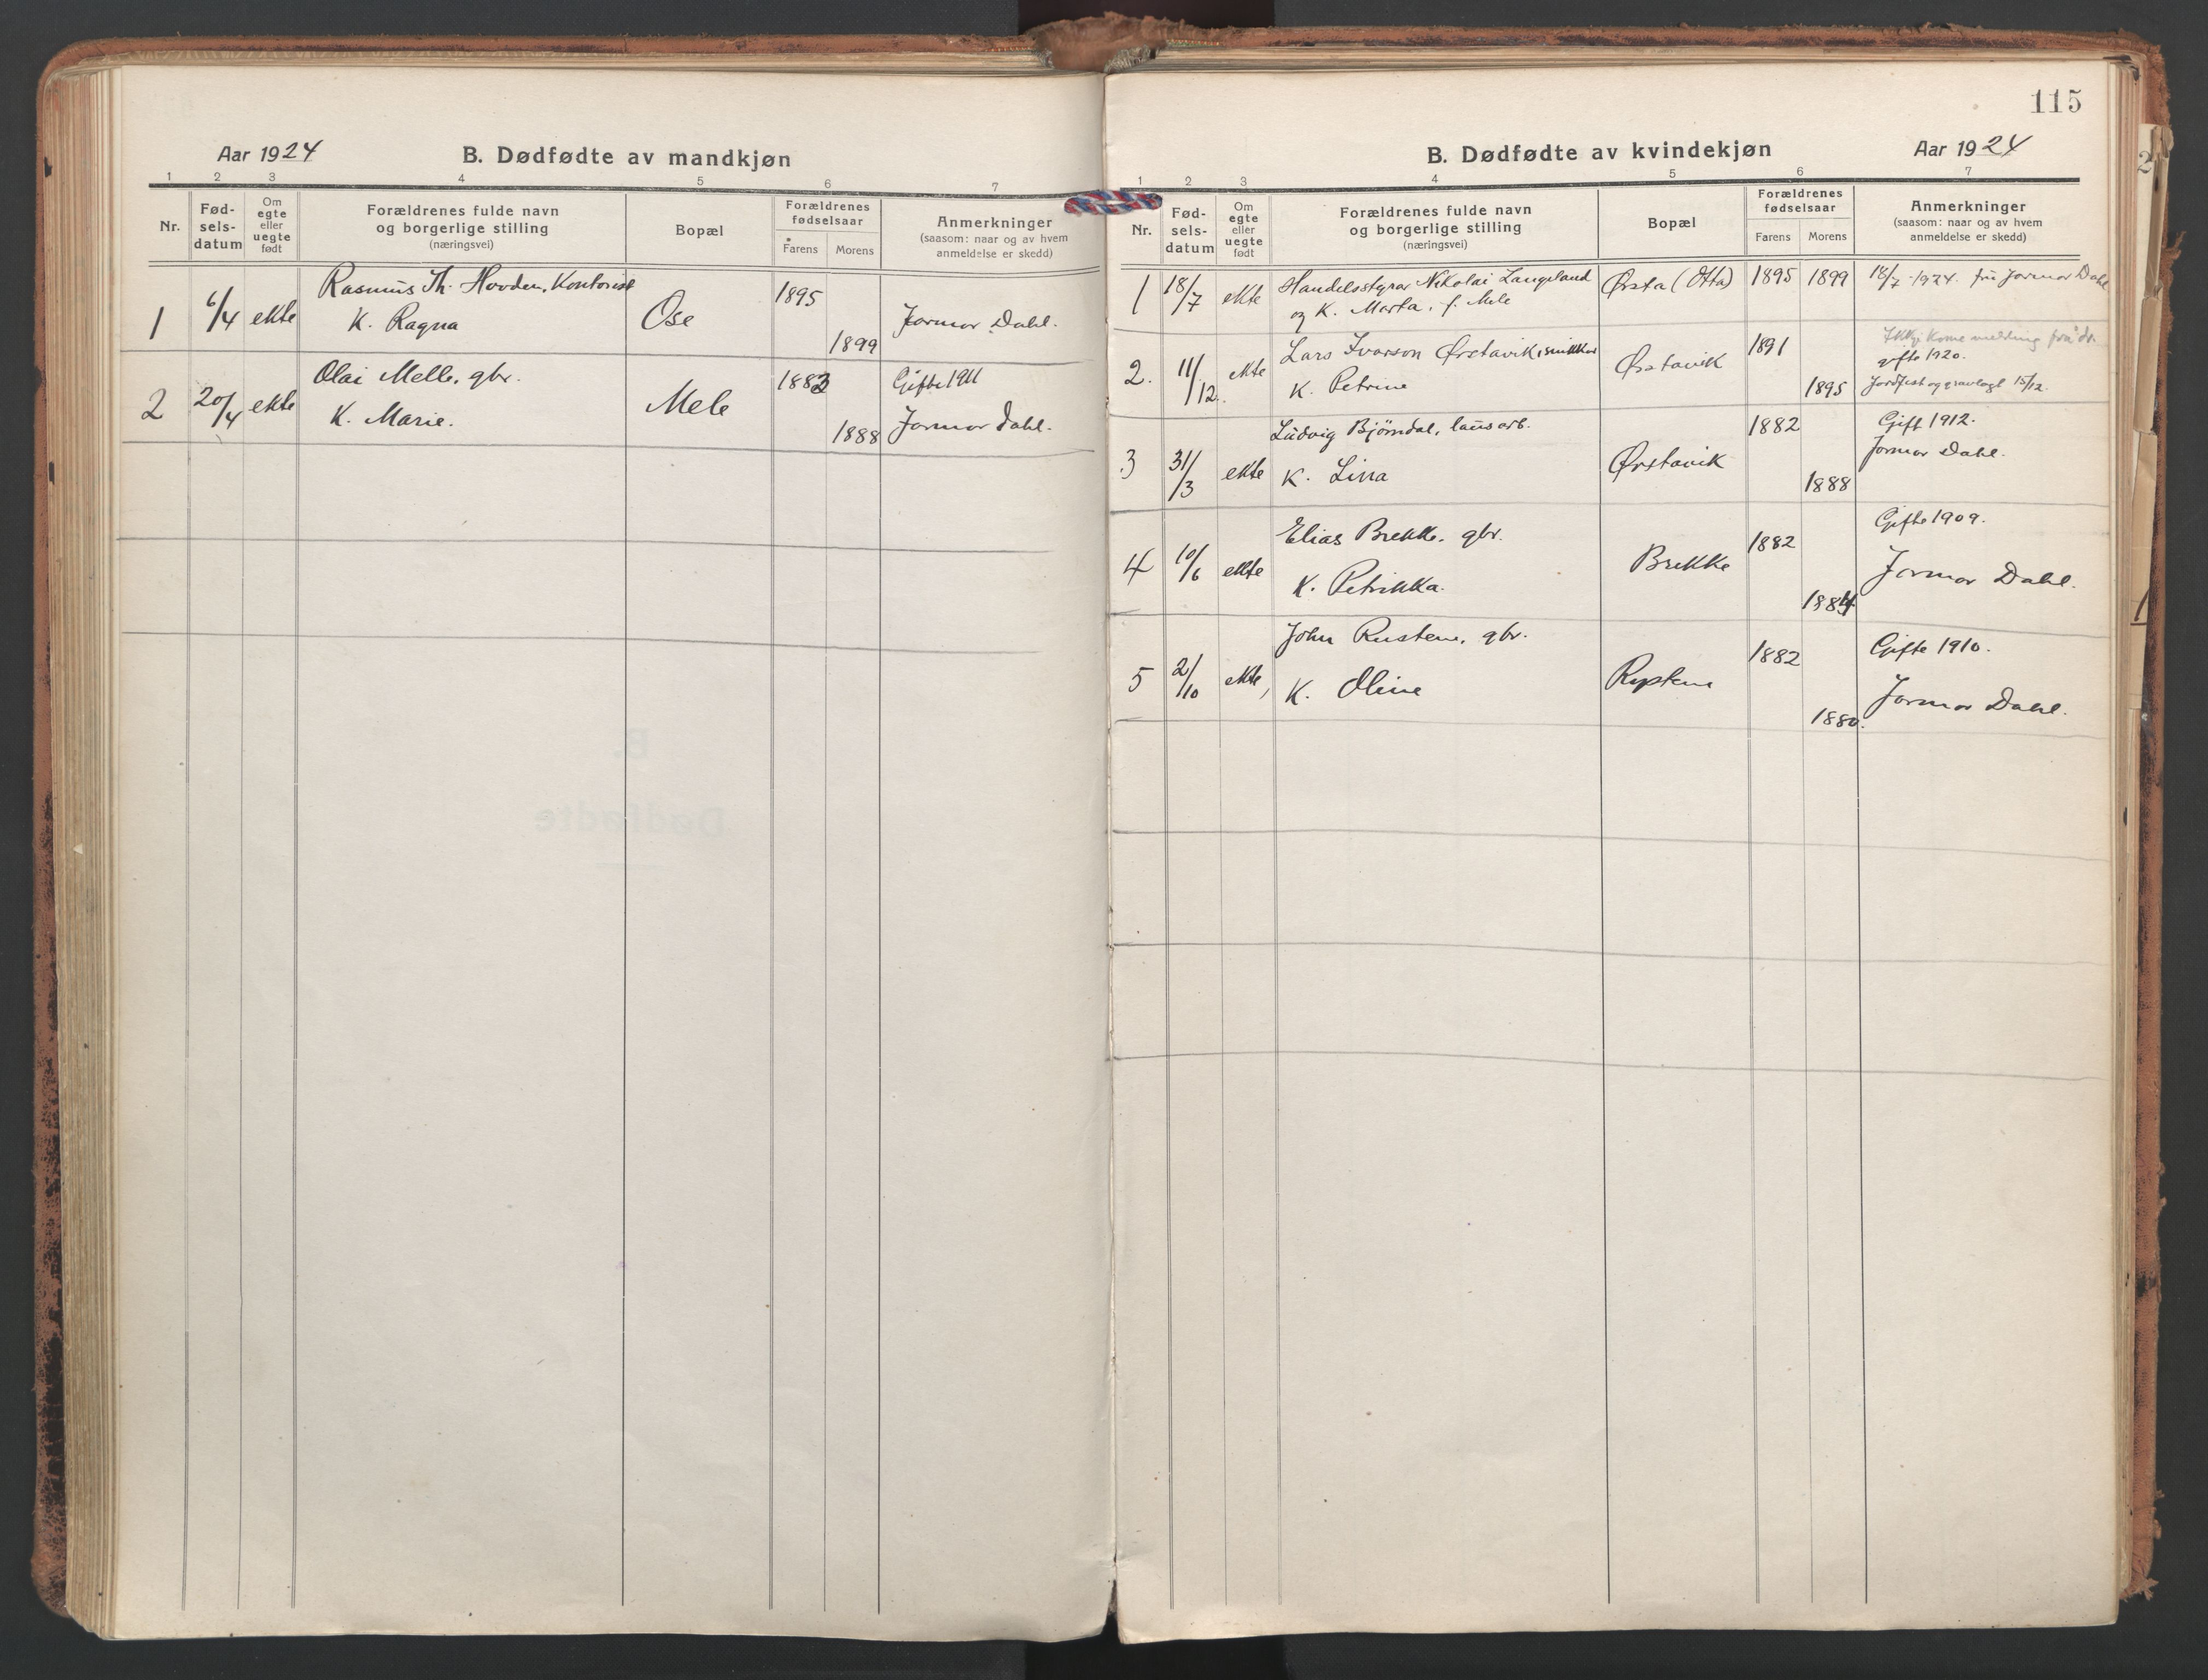 Aar 1924
B. Dødfødte av mandkjøn
1 2 3 4 5 6 7
Nr.
Fød-
sels-
datum
Om
egte
eller
uegte
født
Forældrenes fulde navn
og borgerlige stilling
(næringsvei)
Bopæl
Forældrenes
fødselsaar
Farens Morens
Anmerkninger
(saasom: naar og av hvem
anmeldelse er skedd)
Rasmus Th. Hovden, Kontorist 1895
1 6/4 ekte K. Ragna Ose Jormor Dahl.
1899
Olai Melle, gbr. 1882 Gifte 1911
2 20/4 ekte K. Marie. Mele 1888 Jormor Dahl.
115
B. Dødfødte av kvindekjøn
Aar 1924
1 2 3 4 5 6 7
Nr.
Fød-
sels-
datum
Om
egte
eller
uegte
født
Forældrenes fulde navn
og borgerlige stilling
(næringsvei)
Bopæl
Forældrenes
fødselsaar
Farens Morens
Anmerkninger
(saasom: naar og av hvem
anmeldelse er skedd)
1 18/7 ekte Handelsstyrar Nikolai Langeland Ørsta (Otta) 1895 1899 18/7 1924. frå Jormor Dahl
og K. Marta, f. Mele
Ikkje kome melding frå dr.
Lars Ivarson Ørstavik, snikkar 1891 gifte 1920.
2. 11/12. ekte K. Petrine Ørstavik 1895 Jordfest og gravlagt 15/12.
Ludvig Bjørndal, lausarb. 1882 Gift 1912.
3 31/3 ekte K. Lina Ørstavik 1888 Jormor Dahl.
Elias Brekke, gbr. 1882 Gifte 1909.
4 10/6 ekte K. Petrikka. Brekke 1884 Jormor Dahl.
John Rustene, gbr. 1882 Gifte 1910.
5 2/10 ekte, K. Oline Rystene 1880. Jormor Dahl.